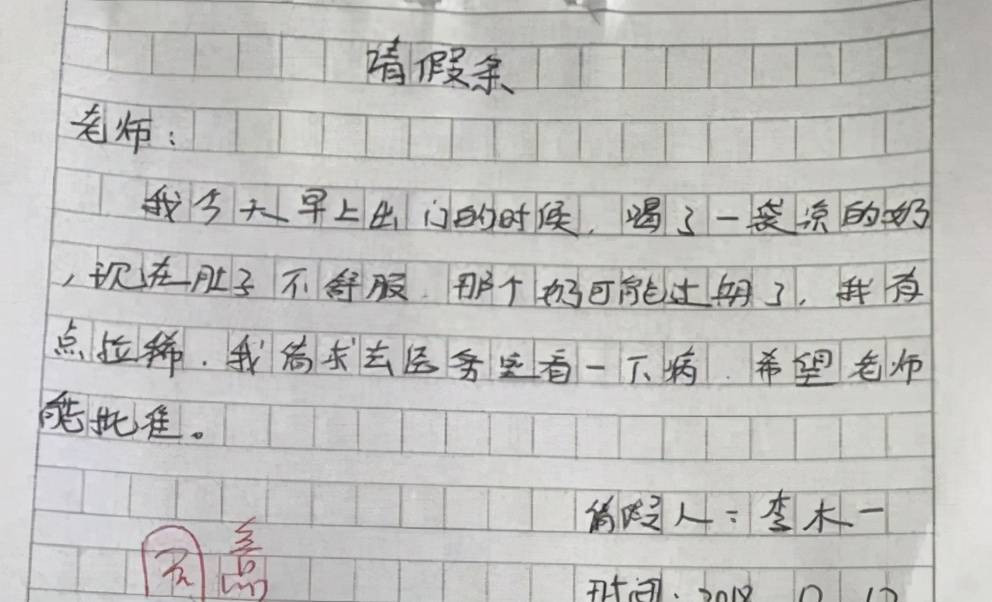 请假条
老师:
我今天早上出门的时候,喝了一袋凉的奶
,现在肚子不舒服.那个奶可能过期了,我有
点拉稀.我请求去医务室看一下病.希望老师
能批准。
请假人:李木一
不 意
时间:2018